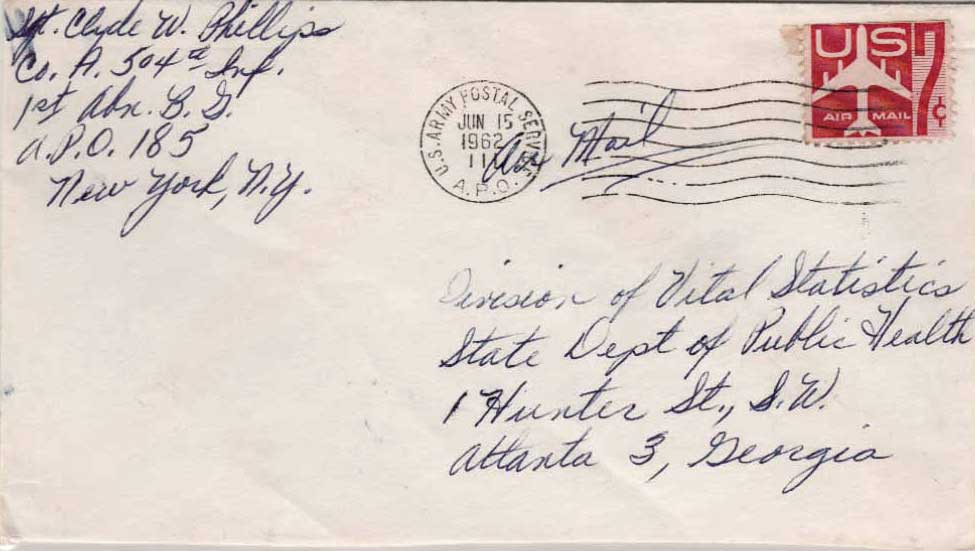 Sgt. Clyde W. Phillips
Co. A. 504th Inf.
1st Abn. B. G.
A.P.O. 185
New York, N.Y.
U.S. ARMY POSTAL SERVICE
JUN 15
1962
A.P.O.
Air Mail
US
AIR MAIL
7¢
Division of Vital Statistics
State Dept of Public Health
1 Hunter St., S.W.
Atlanta 3, Georgia